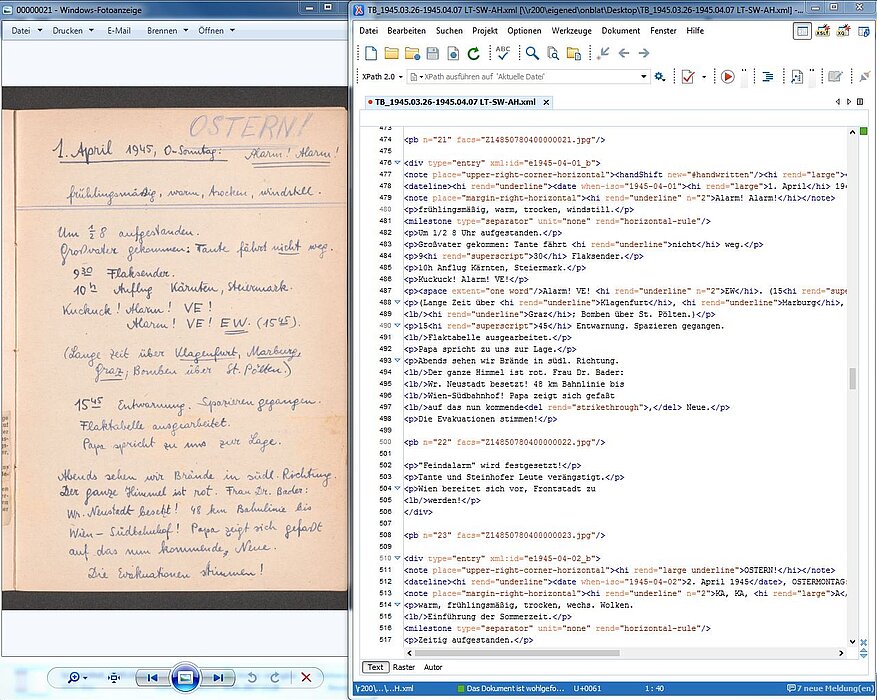 00000021 - Windows-Fotoanzeige
Datei Drucken E-Mail Brennen Öffnen
OSTERN!
1. April 1945, O-Sonntag: Alarm! Alarm!
frühlingsmäßig, warm, trocken, windstill.
Um 1/2 8 aufgestanden.
Großvater gekommen: Tante fährt nicht weg.
9 30 Flaksender.
10 h Anflug Kärnten, Steiermark.
Kuckuck! Alarm! VE!
Alarm! VE! EW. (15 45).
(Lange Zeit über Klagenfurt, Marburg,
Graz; Bomben über St. Pölten.)
15 45 Entwarnung. Spazieren gegangen.
Flaktabelle ausgearbeitet.
Papa spricht zu uns zur Lage.
Abends sehen wir Brände in südl. Richtung.
Der ganze Himmel ist rot. Frau Dr. Bader:
Wr. Neustadt besetzt! 48 km Bahnlinie bis
Wien-Südbahnhof! Papa zeigt sich gefaßt
auf das nun kommende, Neue.
Die Evakuationen stimmen!
TB_1945.03.26-1945.04.07 LT-SW-AH.xml [\\r200\eigened\onblat\Desktop\TB_1945.03.26-1945.04.07 LT-SW-AH.xml] -
Datei Bearbeiten Suchen Projekt Optionen Werkzeuge Dokument Fenster Hilfe
XPath 2.0 XPath ausführen auf 'Aktuelle Datei'
TB_1945.03.26-1945.04.07 LT-SW-AH.xml
473
474 <pb n="21" facs="Z14850780400000021.jpg"/>
475
476 <div type="entry" xml:id="e1945-04-01_b">
477 <note place="upper-right-corner-horizontal"><handShift new="#handwritten"/><hi rend="large">
478 <dateline><hi rend="underline"><date when-iso="1945-04-01"><hi rend="large">1. April</hi> 19
479 <note place="margin-right-horizontal"><hi rend="underline" n="2">Alarm! Alarm!</hi></note>
480 <p>frühlingsmäßig, warm, trocken, windstill.</p>
481 <milestone type="separator" unit="none" rend="horizontal-rule"/>
482 <p>Um 1/2 8 Uhr aufgestanden.</p>
483 <p>Großvater gekommen: Tante fährt <hi rend="underline">nicht</hi> weg.</p>
484 <p>9<hi rend="superscript">30</hi> Flaksender.</p>
485 <p>10h Anflug Kärnten, Steiermark.</p>
486 <p>Kuckuck! Alarm! VE!</p>
487 <p><space extent="one word"/>Alarm! VE! <hi rend="underline" n="2">EW</hi>. (15<hi rend="supe
488 <p>(Lange Zeit über <hi rend="underline">Klagenfurt</hi>, <hi rend="underline">Marburg</hi>,
489 <lb/><hi rend="underline">Graz</hi>; Bomben über St. Pölten.)</p>
490 <p>15<hi rend="superscript">45</hi> Entwarnung. Spazieren gegangen.
491 <lb/>Flaktabelle ausgearbeitet.</p>
492 <p>Papa spricht zu uns zur Lage.</p>
493 <p>Abends sehen wir Brände in südl. Richtung.
494 <lb/>Der ganze Himmel ist rot. Frau Dr. Bader:
495 <lb/>Wr. Neustadt besetzt! 48 km Bahnlinie bis
496 <lb/>Wien-Südbahnhof! Papa zeigt sich gefaßt
497 <lb/>auf das nun kommende<del rend="strikethrough">,</del> Neue.</p>
498 <p>Die Evakuationen stimmen!</p>
499
500 <pb n="22" facs="Z14850780400000022.jpg"/>
501
502 <p>"Feindalarm" wird festgesetzt!</p>
503 <p>Tante und Steinhofer Leute verängstigt.</p>
504 <p>Wien bereitet sich vor, Frontstadt zu
505 <lb/>werden!</p>
506 </div>
507
508 <pb n="23" facs="Z14850780400000023.jpg"/>
509
510 <div type="entry" xml:id="e1945-04-02_b">
511 <note place="upper-right-corner-horizontal"><hi rend="large underline">OSTERN!</hi></note>
512 <dateline><hi rend="underline"><date when-iso="1945-04-02">2. April 1945</date>, OSTERMONTAG:
513 <note place="margin-right-horizontal"><hi rend="underline" n="2">KA, KA, <hi rend="large">A<
514 <p>warm, frühlingsmäßig, trocken, wechs. Wolken.
515 <lb/>Einführung der Sommerzeit.</p>
516 <milestone type="separator" unit="none" rend="horizontal-rule"/>
517 <p>Zeitig aufgestanden.</p>
Text Raster Autor
\r200\...\...H.xml Das Dokument ist wohlgefo... U+0061 1 : 40 7 neue Meldung(en)